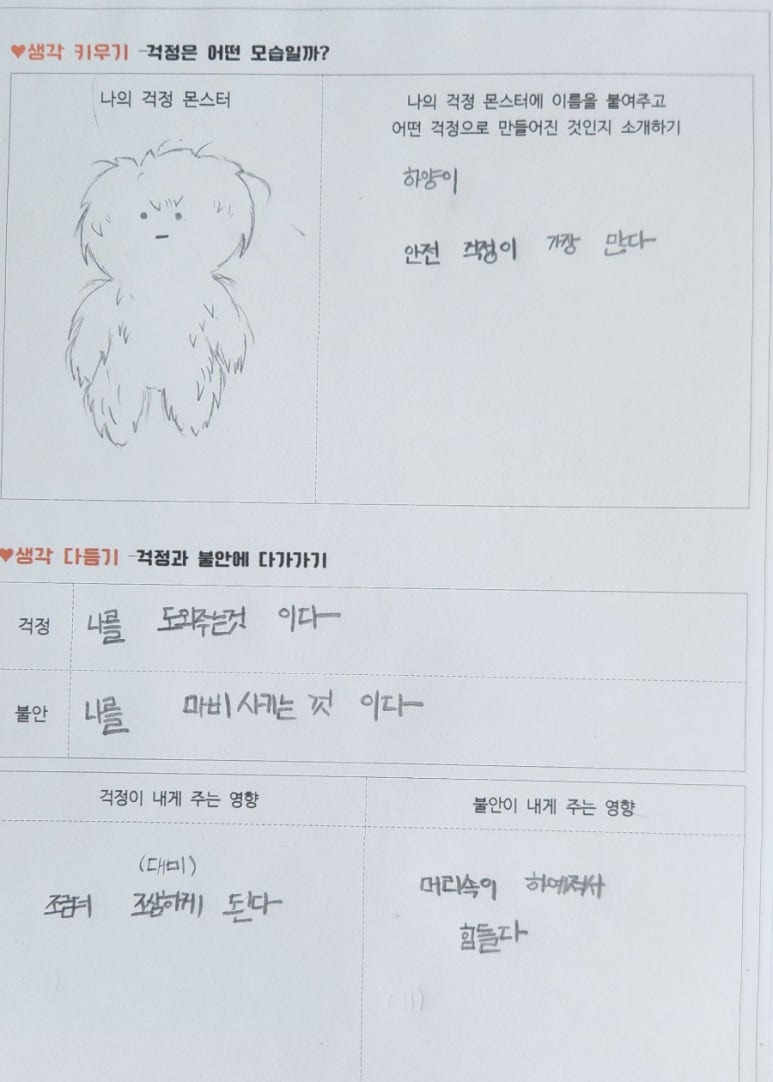 ♥생각 키우기 -걱정은 어떤 모습일까?
나의 걱정 몬스터
나의 걱정 몬스터에 이름을 붙여주고
어떤 걱정으로 만들어진 것인지 소개하기
하양이
안전 걱정이 가장 많다
♥생각 다듬기 -걱정과 불안에 다가가기
걱정
나를 도와주는것 이다
불안
나를 마비시키는 것 이다
걱정이 내게 주는 영향
(대비)
조금더 조심하게 된다
불안이 내게 주는 영향
머리속이 하예져서
힘들다